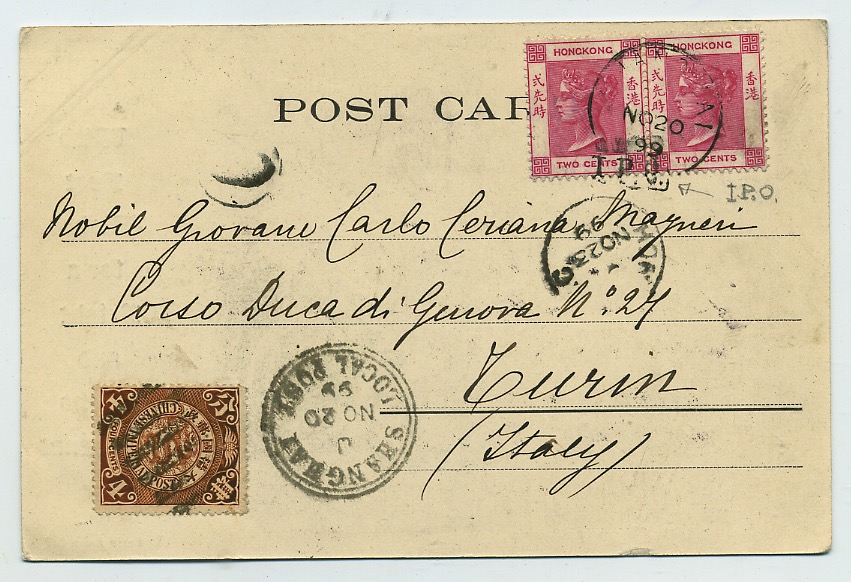 POST CAR
HONGKONG
HONGKONG
弍先時
香港
弍先時
香港
TWO CENTS
TWO CENTS
NO 20
99
I.P.O.
Nobil Giovane Carlo Ceriana Mayneri
99
NO 23
Corso Duca di Genova Nº 27
Turin
(Italy)
SHANGHAI
LOCAL POST
J
NO 20
99
CHINESE IMPERIAL POST
4
4